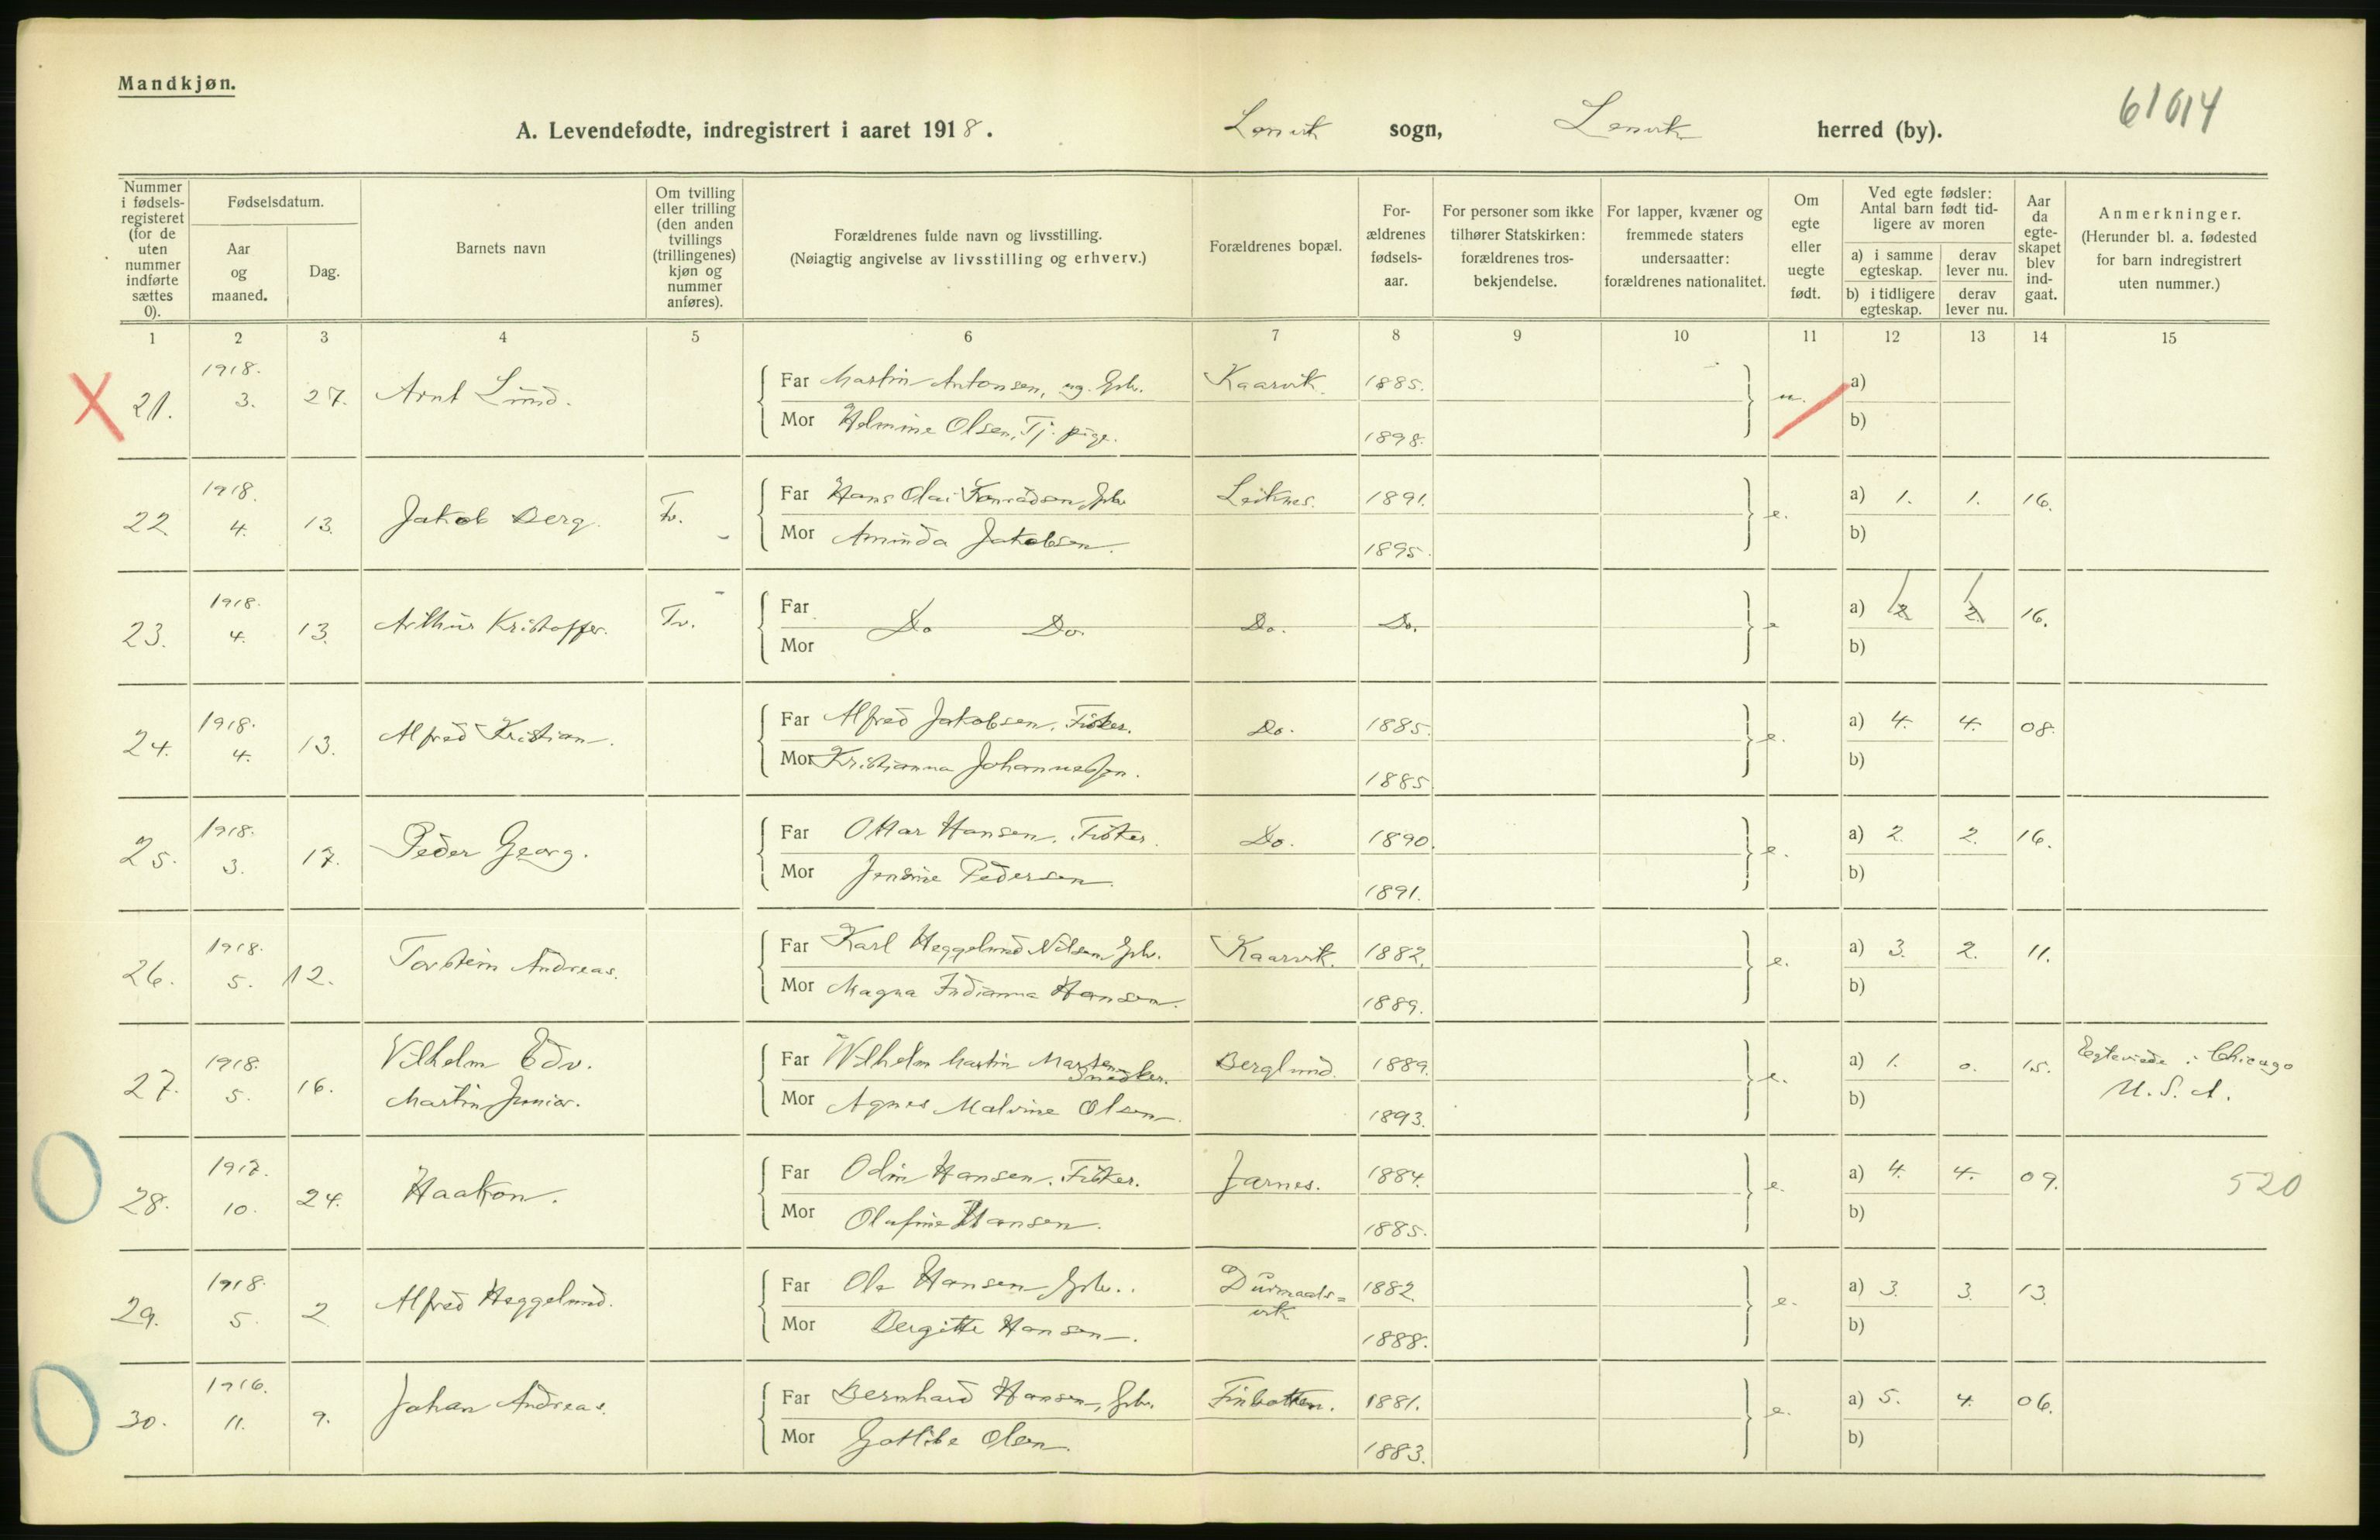 Mandkjøn.
61014
A. Levendefødte, indregistrert i aaret 1918. Lenvik sogn, Lenvik herred (by).
Nummer i fødsels-registeret (for de uten nummer indførte sættes 0).
Fødselsdatum.
Aar og maaned.
Dag.
Barnets navn
Om tvilling eller trilling (den anden tvillings (trillingenes) kjøn og nummer anføres).
Forældrenes fulde navn og livsstilling.
(Nøiagtig angivelse av livsstilling og erhverv.)
Forældrenes bopæl.
For-ældrenes fødsels-aar.
For personer som ikke tilhører Statskirken: forældrenes tros-bekjendelse.
For lapper, kvæner og fremmede staters undersaatter: forældrenes nationalitet.
Om egte eller uegte født.
Ved egte fødsler: Antal barn født tid-ligere av moren
a) i samme egteskap. derav lever nu.
b) i tidligere egteskap. derav lever nu.
Aar da egte-skapet blev ind-gaat.
Anmerkninger.
(Herunder bl. a. fødested for barn indregistrert uten nummer.)
1 2 3 4 5 6 7 8 9 10 11 12 13 14 15
21. 1918. 3. 27. Arnt Lund. Far Martin Antonsen, ug. Gbr. Kaarvik. 1885. u. a)
Mor Helmine Olsen, Tj. pige. 1898. b)
22 1918. 4. 13. Jakob Berg. Tv. Far Hans Olai Konradsen, Gbr Leiknes. 1891. e. a) 1. 1. 16.
Mor Aminda Jakobsen. 1895. b)
23. 1918. 4. 13. Arthur Kristoffer. Tv. Far Do Do. Do. Do. e a) 1 2 1 2 16.
Mor b)
24. 1918. 4. 13. Alfred Kristian. Far Alfred Jakobsen, Fisker. Do. 1885. e. a) 4. 4. 08.
Mor Kristianna Johannessen. 1885 b)
25. 1918. 3. 17. Peder Georg. Far Ottar Hansen, Fisker. Do. 1890. e. a) 2 2. 16.
Mor Jensine Pedersen. 1891. b)
26. 1918. 5. 12. Torstein Andreas. Far Karl Heggelund Nilsen, Gbr. Kaarvik. 1882. e. a) 3. 2. 11.
Mor Magna Indianna Hansen. 1889. b)
27. 1918. 5. 16. Vilhelm Edv. Martin Junior. Far Wilhelm Martin Martens Snedker. Berglund. 1889. e. a) 1. 0. 15. Egteviede i Chicago U.S.A.
Mor Agnes Malvine Olsen. 1893. b)
28. 1917. 10. 24. Haakon. Far Odin Hansen, Fisker. Jarnes. 1884. e. a) 4. 4. 09. 520
Mor Olufine Hansen. 1885. b)
29. 1918. 5. 2 Alfred Heggelund. Far Ole Hansen, Gbr. Durmaals=
vik 1882. e. a) 3. 3. 13.
Mor Bergitte Hansen. 1888. b)
30. 1916. 11. 9. Johan Andreas. Far Bernhard Hansen, Gbr. Finbotten. 1881. e. a) 5. 4. 06.
Mor Gotlibe Olsen. 1883. b)